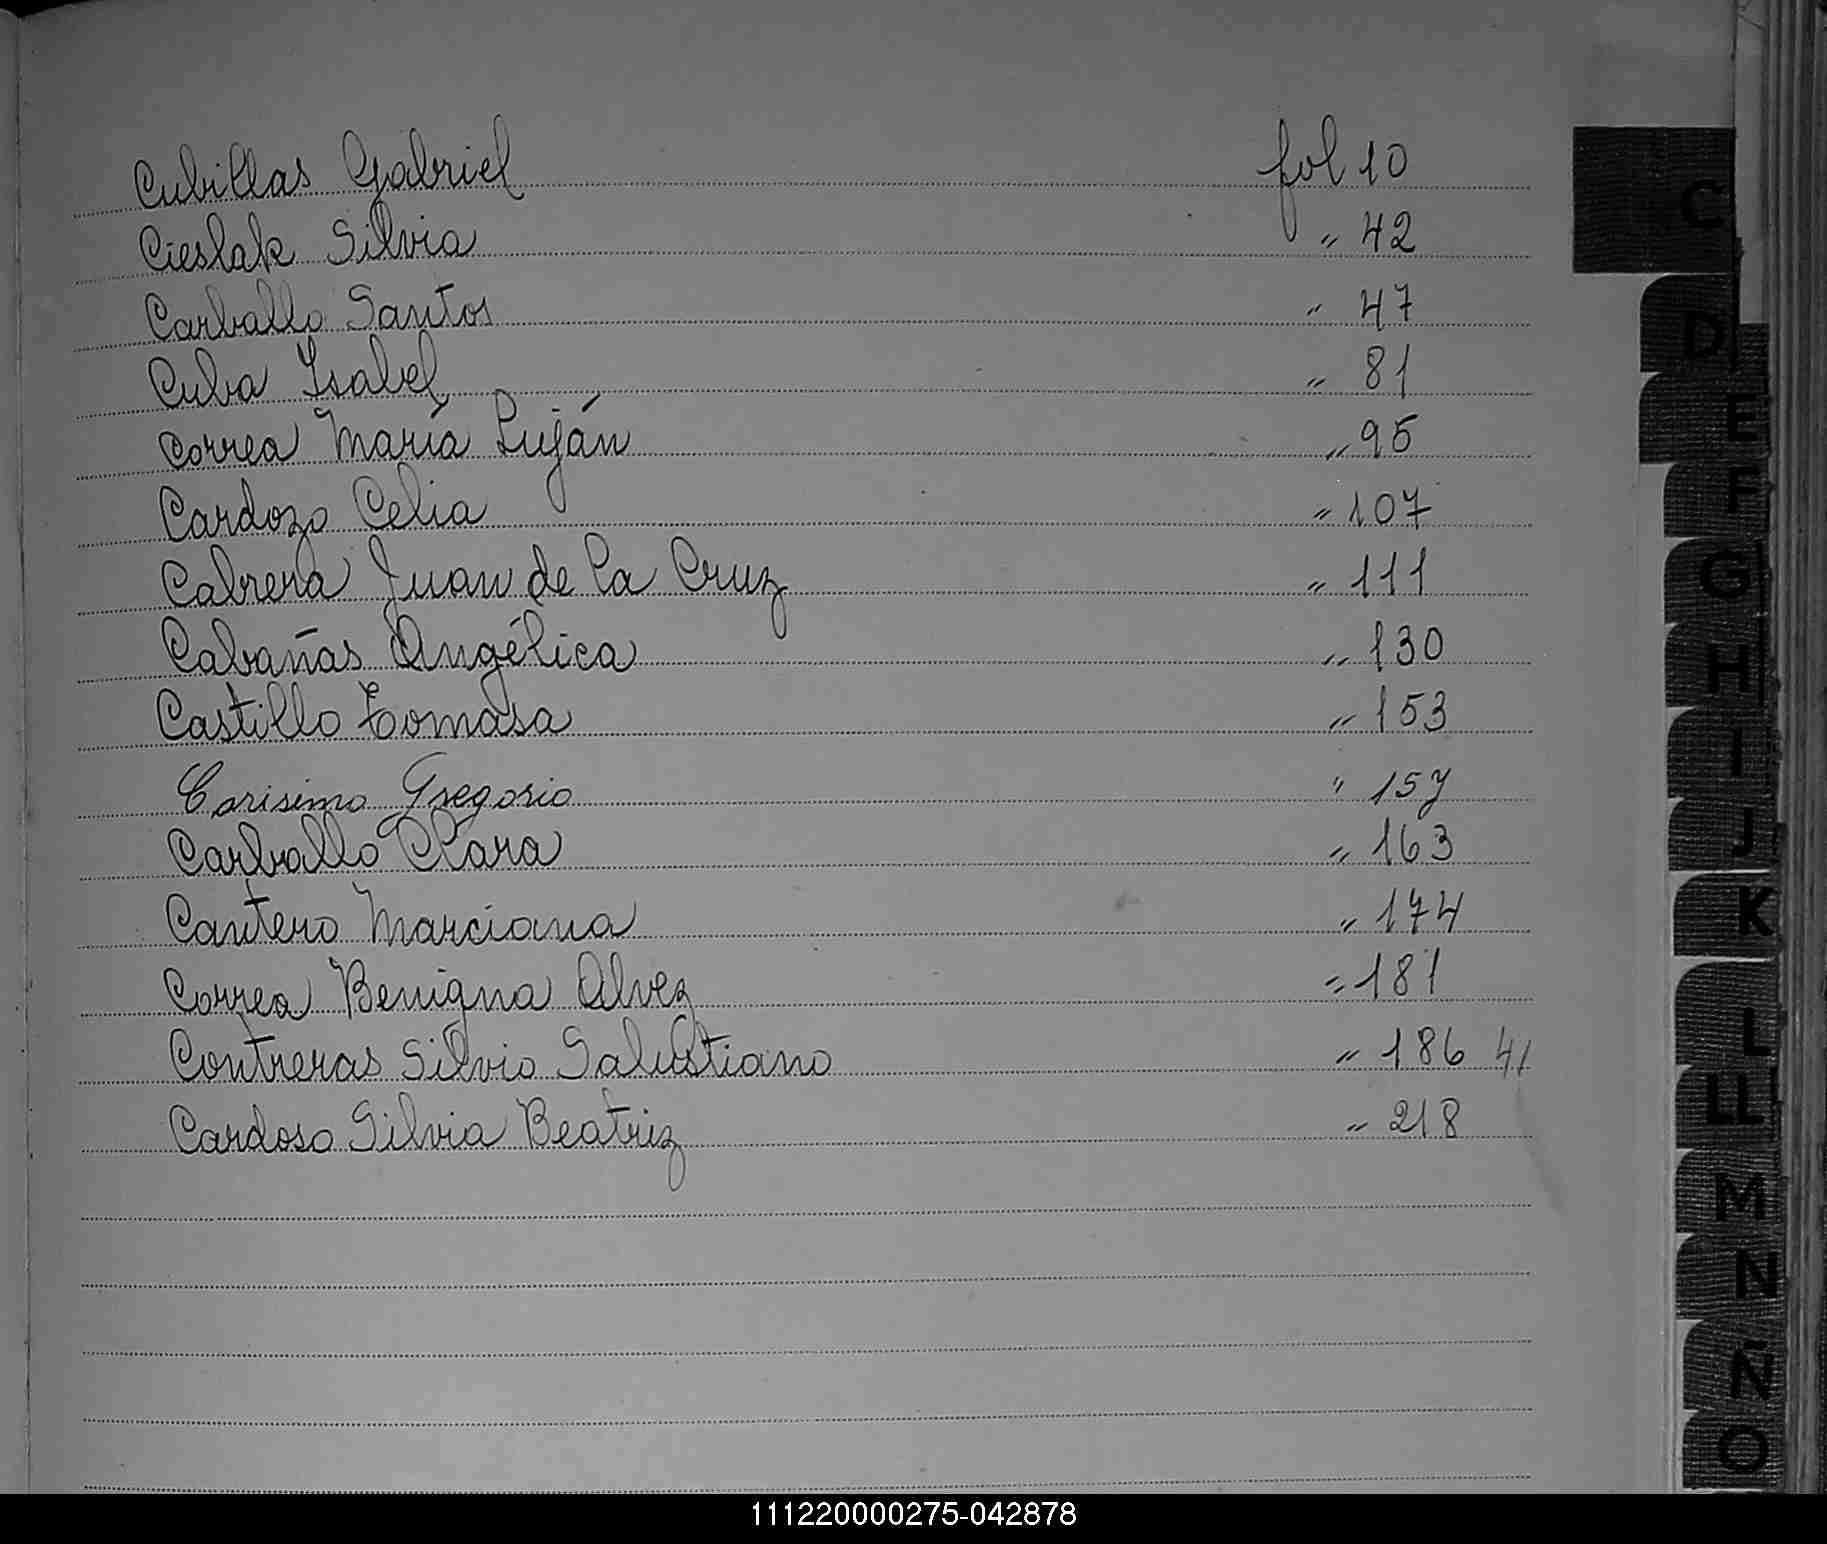 Cubillas Gabriel fol 10
Cieslak Silvia " 42
Carballo Santos " 47
Cuba Isabel " 81
Correa María Luján " 95
Cardozo Celia " 107
Cabrera Juan de la Cruz " 111
Cabañas Angélica " 130
Castillo Tomasa " 153
Carisimo Gregorio " 157
Carballo Clara " 163
Cantero Marciana " 174
Correa Benigna Alvez " 181
Contreras Silvio Salustiano " 186
Cardoso Silvia Beatriz " 218
C
D
E
F
G
H
I
J
K
L
LL
M
N
Ñ
O
111220000275-042878